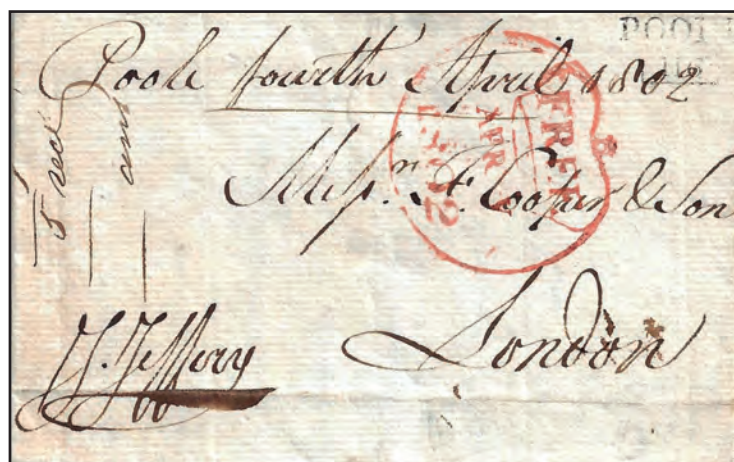 POOLE
Poole fourth April 1802
FREE
APR
1802
Messrs. F. Cooper & Son
London
J. Jeffery